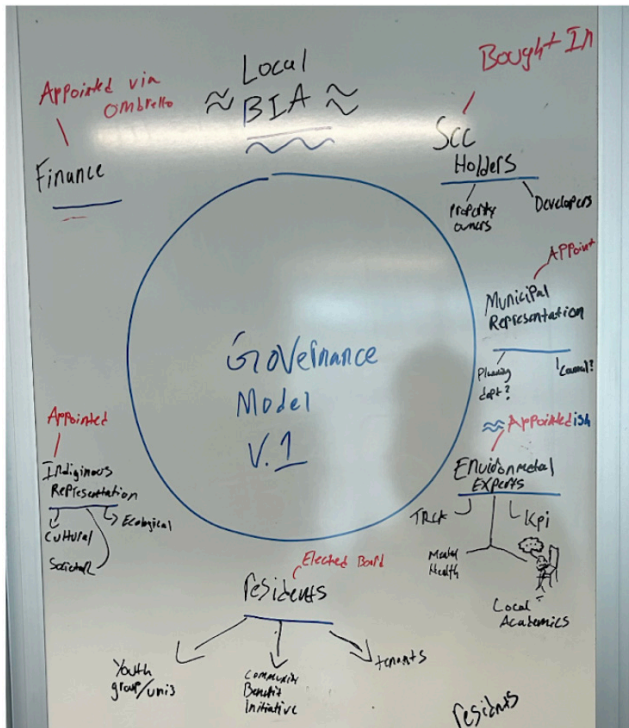 Local
BIA
Appointed via
Ombrello
Finance
Bought In
SCC
Holders
Property
owners
Developers
Appoint
Municipal
Representation
Planning
dept?
Council?
Governance
Model
V.1
Appointedish
Environmetal
Experts
TRCA
Kpi
Mental
Health
Local
Academics
Appointed
Indiginous
Representation
Cultural
Ecological
Elected Board
residents
Youth
group/unis
Community
Benefit
Initiative
tenants
residents